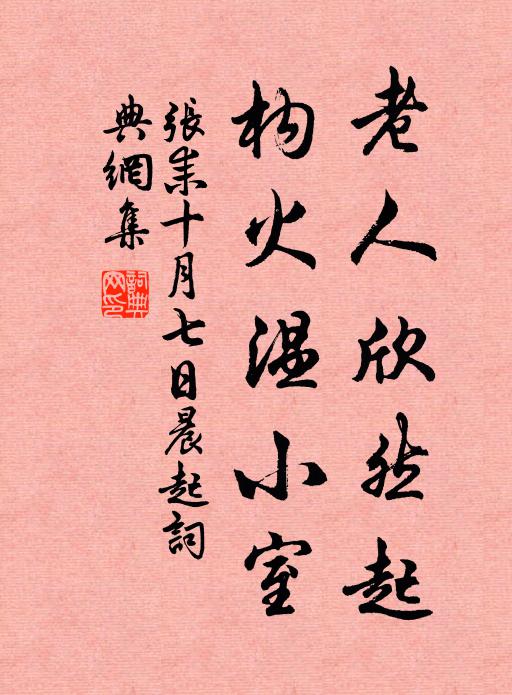 老人欣然起
构火温小室
張耒十月七日晨起詞
典網集
詞典
网印